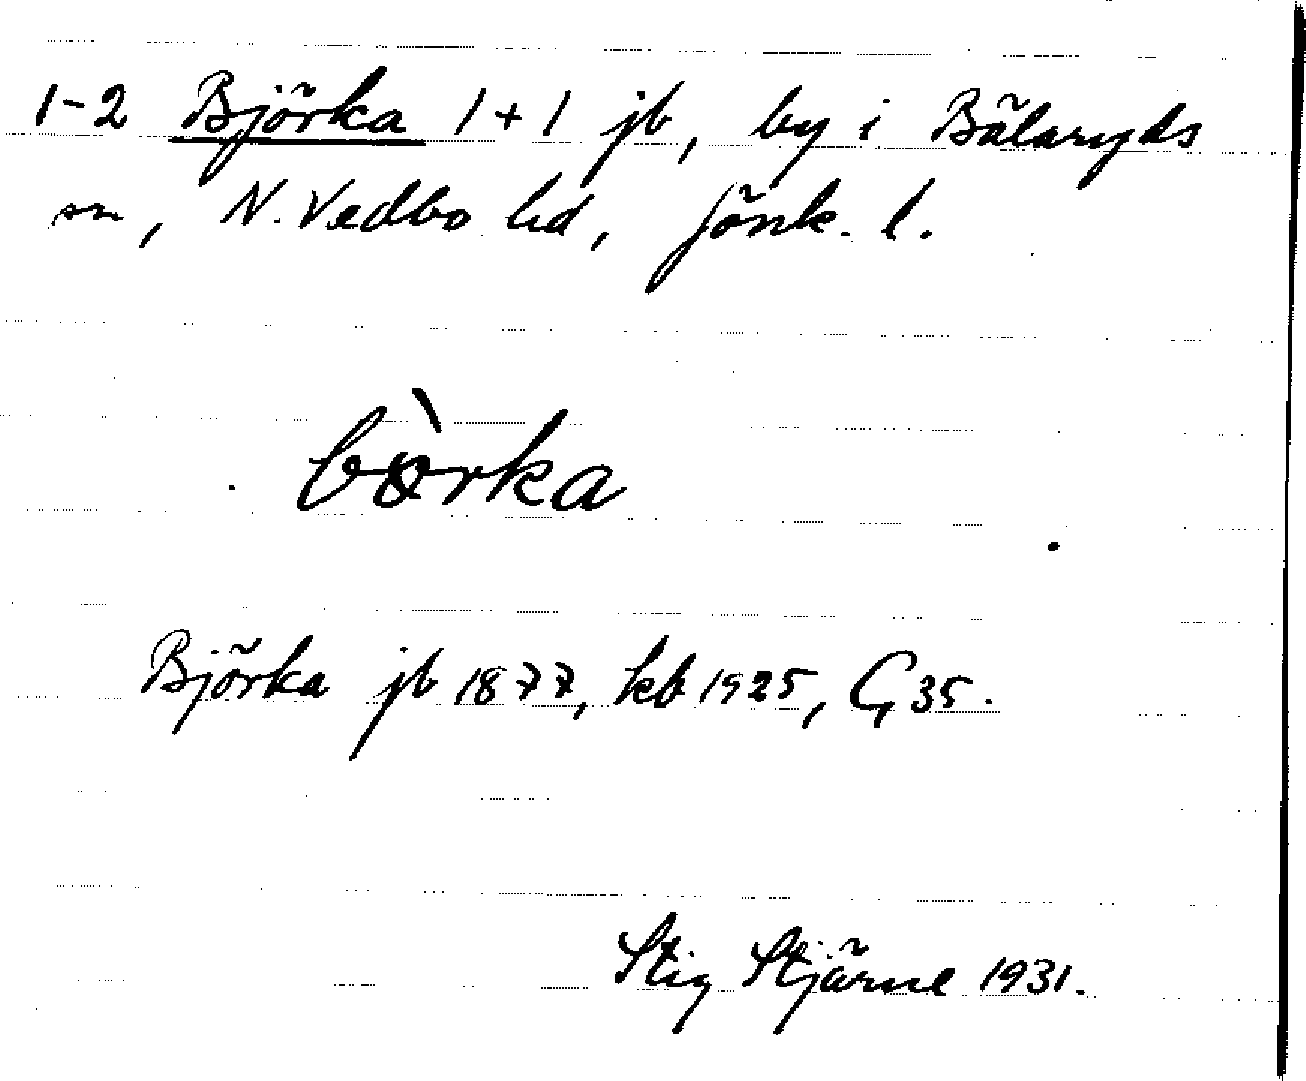 1-2 Björka 1+1 jb, by i Bälaryds
sn, N. Vedbo hd, Jönk. l.
bòrka
Björka jb 1877, kb 1925, G 35.
Stig Stjärne 1931.